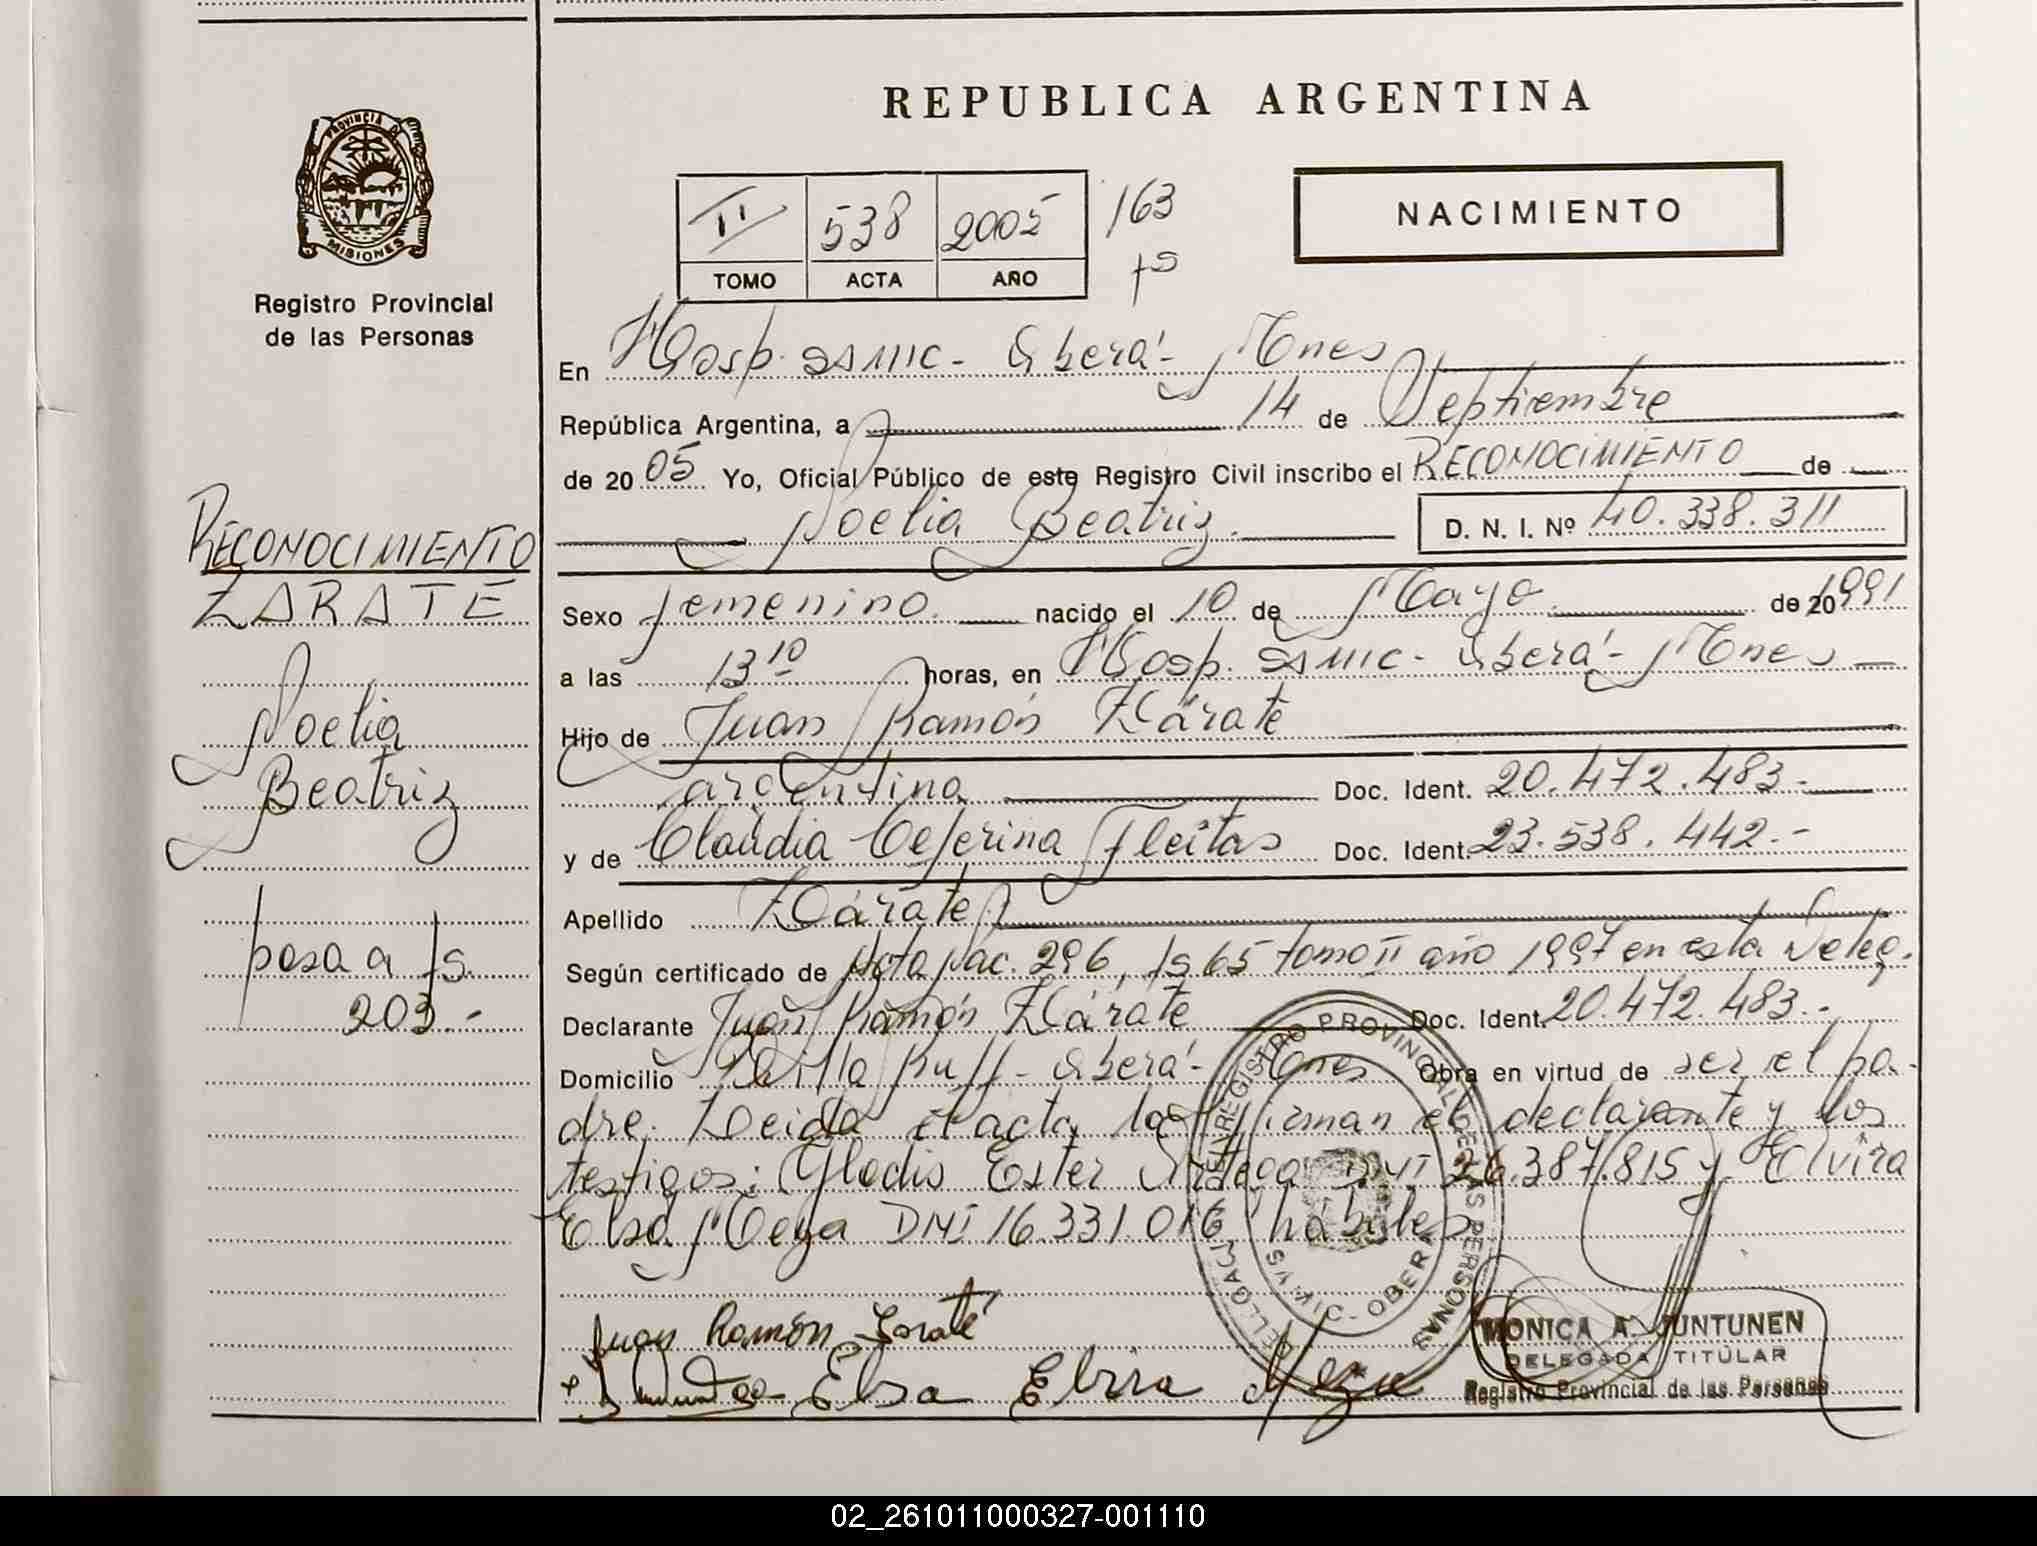 REPUBLICA ARGENTINA
PROVINCIA D
MISIONES
Registro Provincial
de las Personas
II 538 2005 163
TOMO ACTA AÑO fs
NACIMIENTO
En Hosp. SAMIC - Oberá - Mnes
República Argentina, a 14 de Septiembre
de 2005 Yo, Oficial Público de este Registro Civil inscribo el RECONOCIMIENTO de
Noelia Beatriz. D. N. I. Nº 40.338.311
RECONOCIMIENTO
ZARATE
Noelia
Beatriz
pasa a fs.
203.-
Sexo femenino. nacido el 10 de Mayo de 20 1991
a las 13 10 horas, en Hosp. SAMIC - Oberá - Mnes
Hijo de Juan Ramón Zárate
argentina Doc. Ident. 20.472.483.-
y de Claudia Ceferina Fleitas Doc. Ident. 23.538.442.-
Apellido Zárate
Según certificado de Acta Nac. 296, fs 65 tomo II año 1997 en esta Deleg.
Declarante Juan Ramón Zárate Doc. Ident. 20.472.483.-
Domicilio Villa Ruff - Oberá - Mnes Obra en virtud de ser el pa-
dre. Leída el acta, la firman el declarante y los
testigos: Gladis Ester Artega DNI 26.387.815 y Elvira
Elsa Meza DNI 16.331.016, hábiles
Juan Ramón Zarate
Elsa Elvira Meza
REGISTRO PROVINCIAL DE LAS PERSONAS
OBERA
MONICA A. JUNTUNEN
DELEGADA TITULAR
Registro Provincial de las Personas
02_261011000327-001110